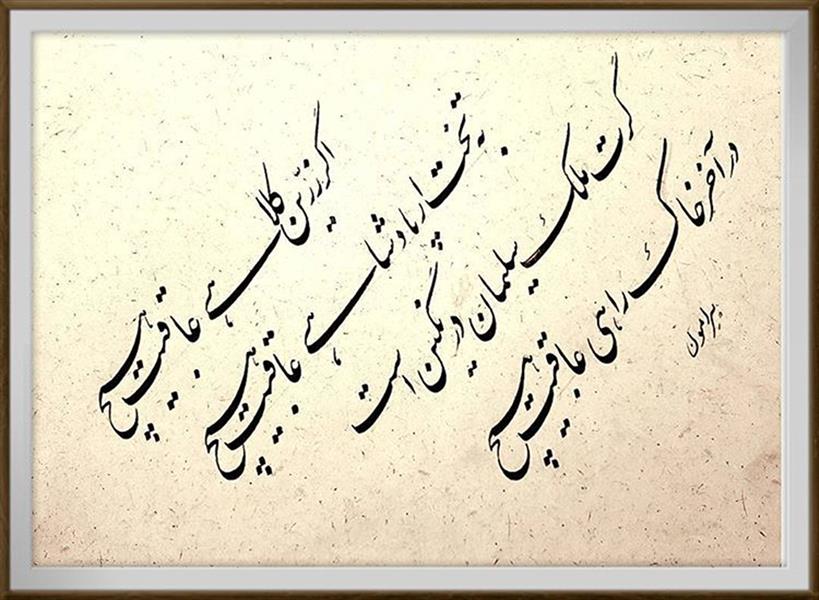 اگر زرّین کلاهی عاقبت هیچ
به تخت ار پادشاهی عاقبت هیچ
گرت ملک سلیمان در نگین است
در آخر خاک راهی عاقبت هیچ